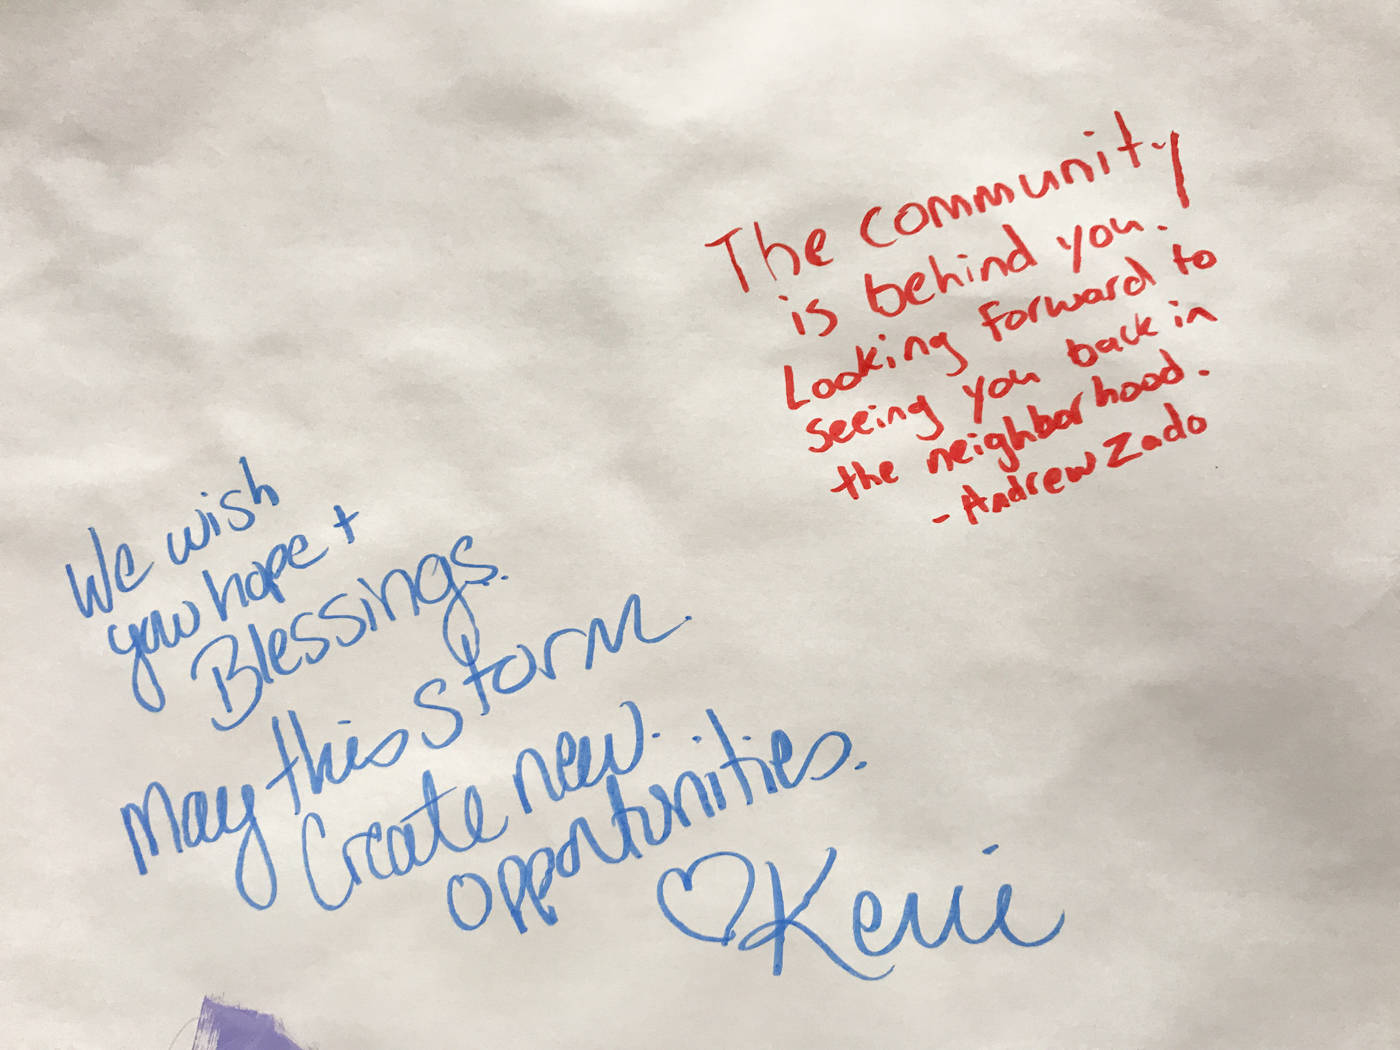 The community
is behind you.
Looking forward to
seeing you back in
the neighborhood.
- Andrew Zado
We wish
you hope +
Blessings.
May this storm.
Create new.
opportunities.
♡ Kerri